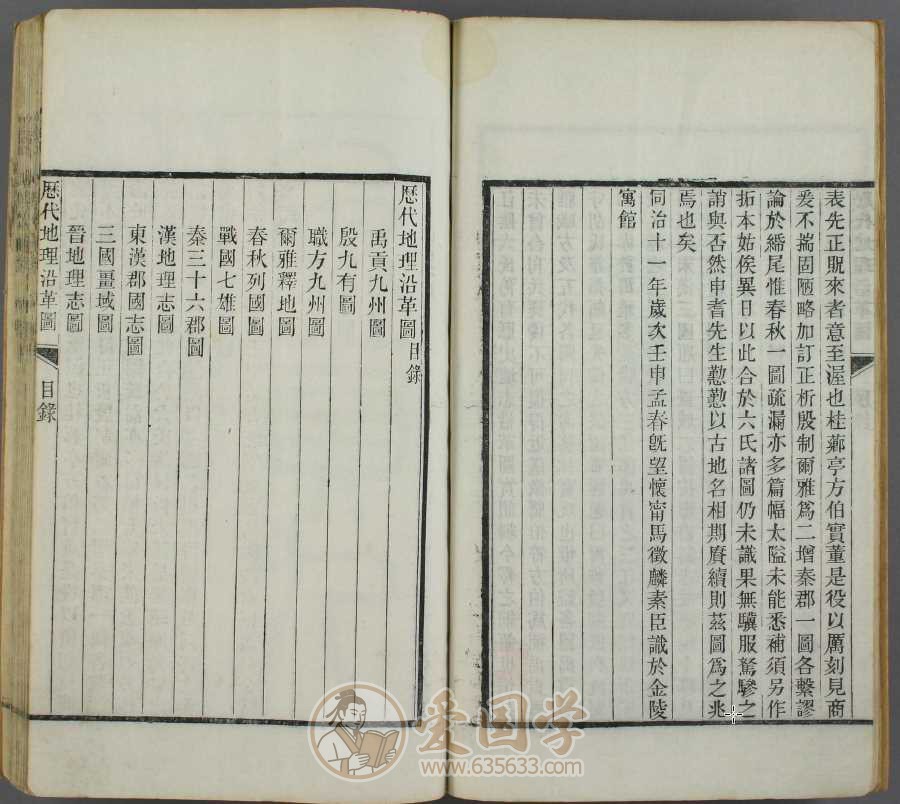 表先正既來者意至渥也桂薌亭方伯實董是役以厲刻見商
爰不揣固陋略加訂正析殷制爾雅爲二增秦郡一圖各繫謬
論於縎尾惟春秋一圖疏漏亦多篇幅太隘未能悉補須另作
拓本始俟異日以此合於六氏諸圖仍未識果無驥服駑驂之
誚與否然申耆先生懃懃以古地名相期賡續則茲圖爲之兆
焉也矣
同治十一年歲次壬申孟春旣望懷甯馬徵麟素臣識於金陵
寓館
歷代地理沿革圖目錄
禹貢九州圖
殷九有圖
職方九州圖
爾雅釋地圖
春秋列國圖
戰國七雄圖
秦三十六郡圖
漢地理志圖
東漢郡國志圖
三國畺域圖
晉地理志圖
歷代地理沿革圖 目錄
爱国学
www.635633.com